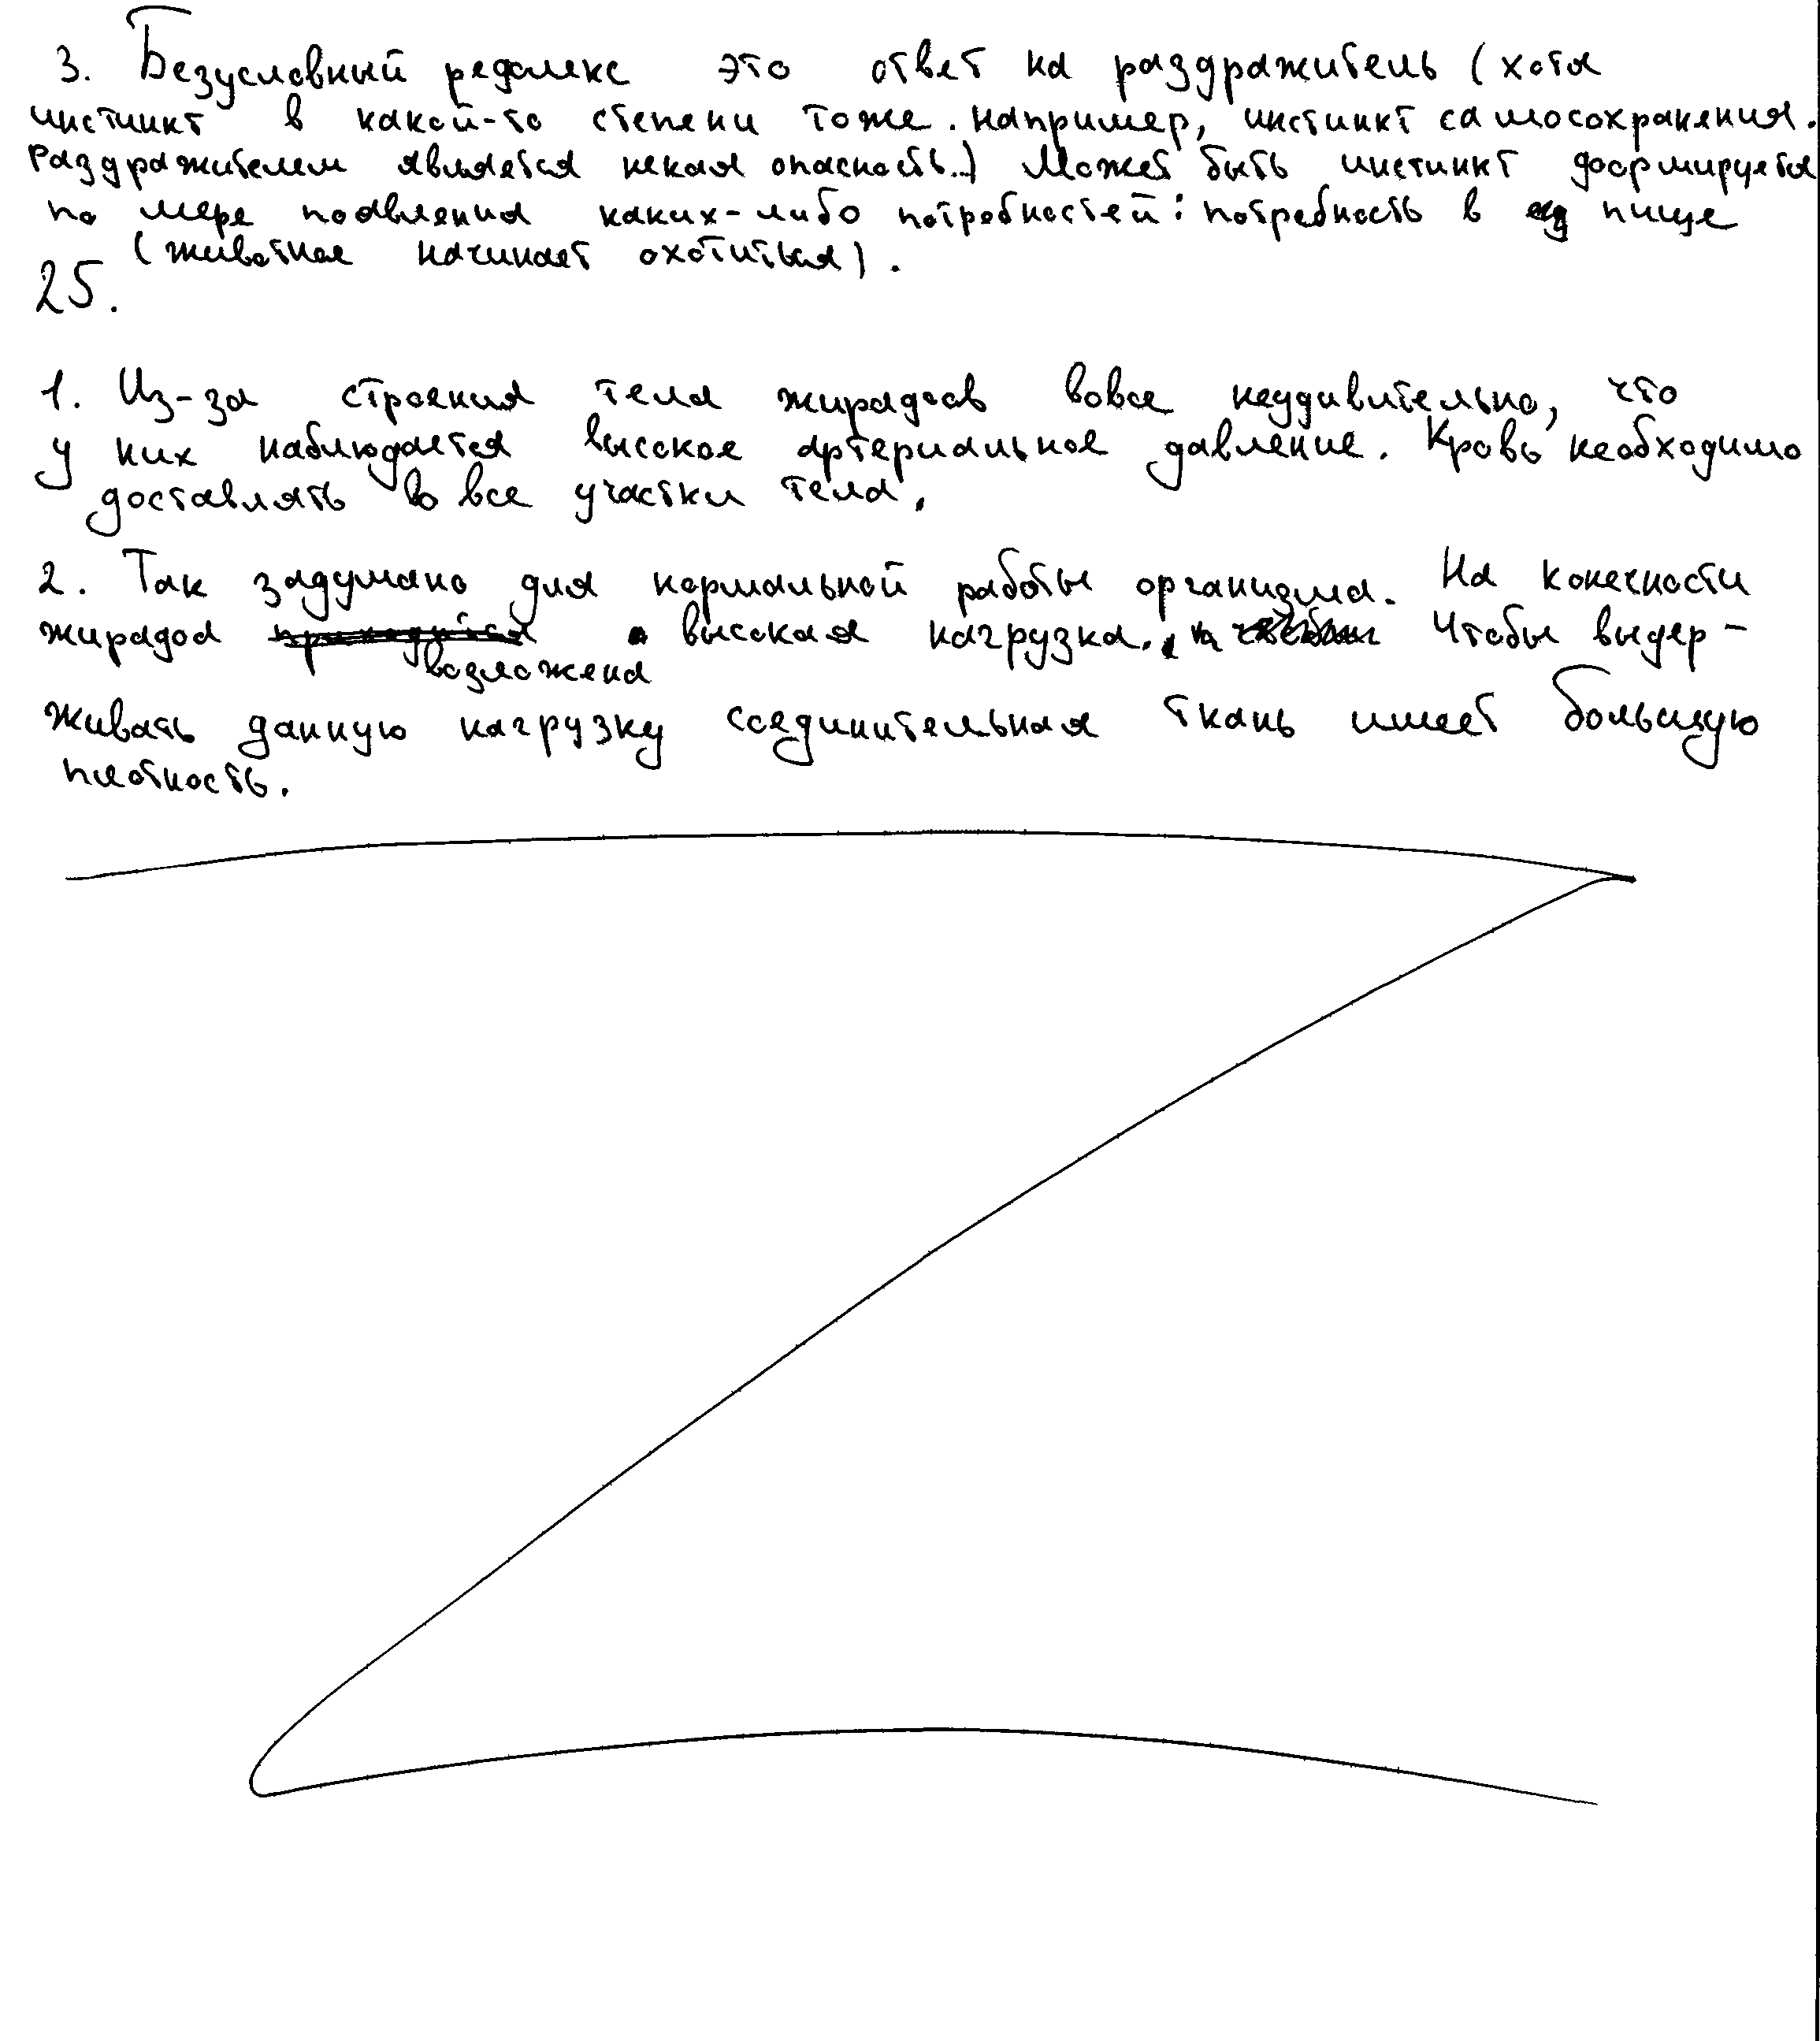 3. Безусловный рефлекс это ответ на раздражитель (хотя
инстинкт в какой-то степени тоже. Например, инстинкт самосохранения.
Раздражителем является некая опасность..) Может быть инстинкт формируется
по мере появления каких-либо потребностей: потребность в пище
(животное начинает охотиться).
25.
1. Из-за строения тела жирафов вовсе неудивительно, что
у них наблюдается высокое артериальное давление. Кровь необходимо
доставлять во все участки тела.
2. Так задумано для нормальной работы организма. На конечности
жирафа приходится высокая нагрузка. Чтобы выдер-
возложена
живать данную нагрузку соединительная ткань имеет большую
плотность.